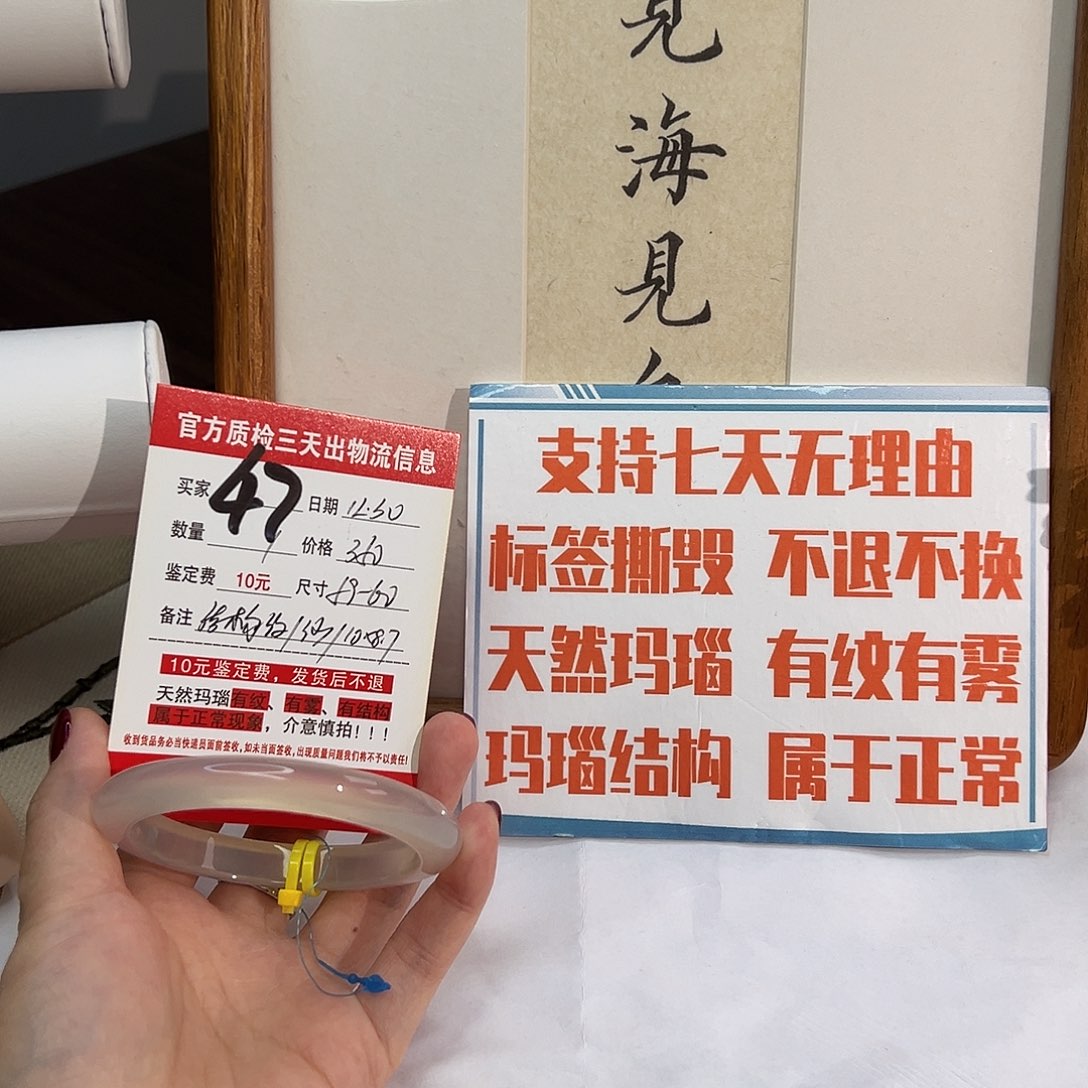 見
海
見
官方质检三天出物流信息
买家 47 日期 12.30
数量 1 价格 360
鉴定费 10元 尺寸 59-60
备注
10元鉴定费，发货后不退
天然玛瑙有纹、有雾、有结构
属于正常现象，介意慎拍！！！
收到货品务必当快递员面前签收，如未当面签收，出现质量问题我们将不予以责任！
支持七天无理由
标签撕毁 不退不换
天然玛瑙 有纹有雾
玛瑙结构 属于正常